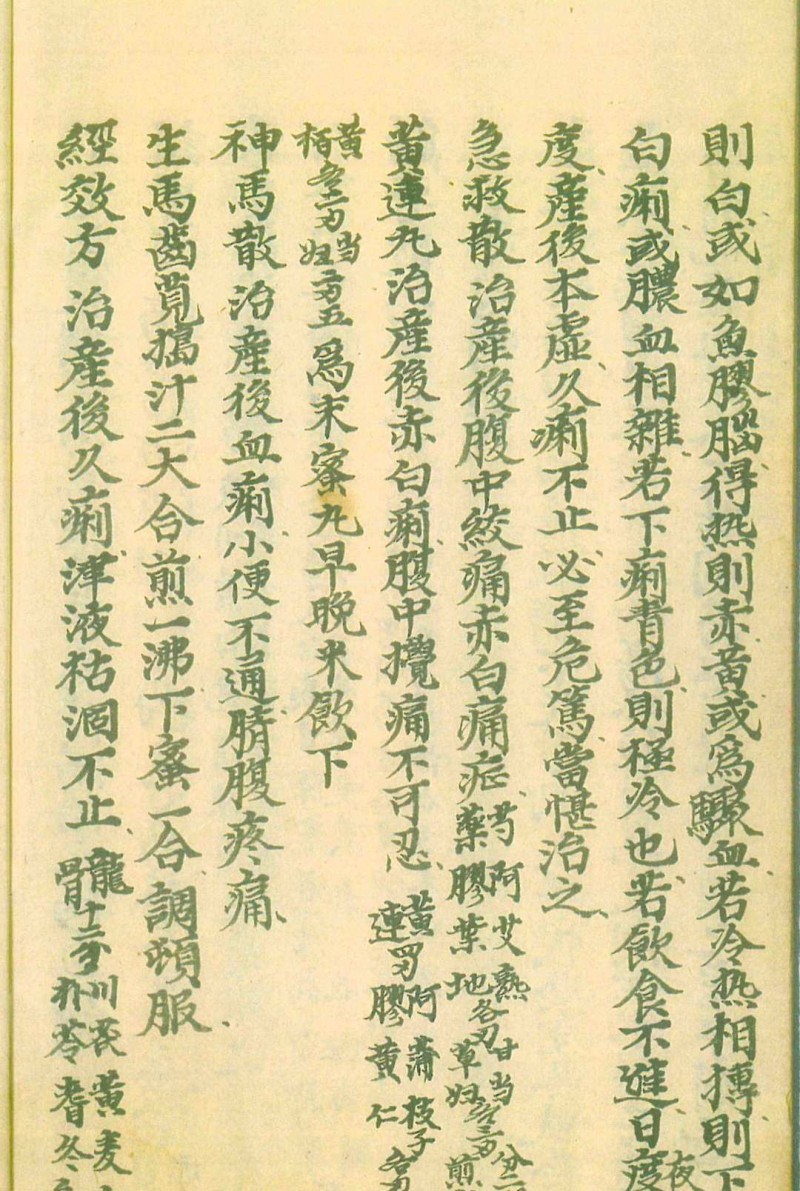 則白或如魚膠腦得热則赤黃或爲驟血若冷热相摶則下
白痢或膿血相雜若下痢青色則極冷也若飲食不進日夜度
度產後本虛久痢不止必至危篤當慎治之
急救散 治產後腹中絞痛赤白痛症 芍藥 阿膠 艾葉 熟地 各刃 甘草 当
黃連丸治產後赤白痢腹中攪痛不可忍 黃連 阿膠 蒲黃 枝子仁
黃栢 当 爲末蜜丸早晚米飲下
神馬散 治產後血痢小便不通臍腹疼痛
生馬齒莧搗汁二大合煎一沸下蜜一合調頓服
經效方 治產後久痢津液枯涸不止 龍骨十二分 川 黃 麦冬